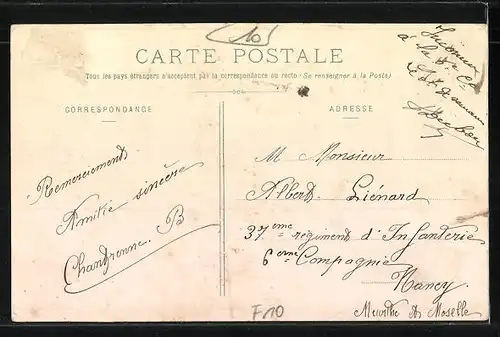 10
CARTE POSTALE
Tous les pays étrangers n'acceptent pas la correspondance au recto (Se renseigner à la Poste)
CORRESPONDANCE
ADRESSE
Remerciements
Amitié sincère
B
M Monsieur
Albert Liénard
37ème régiment d'Infanterie
6ème Compagnie
Nancy
Meurthe et Moselle
F10
à la